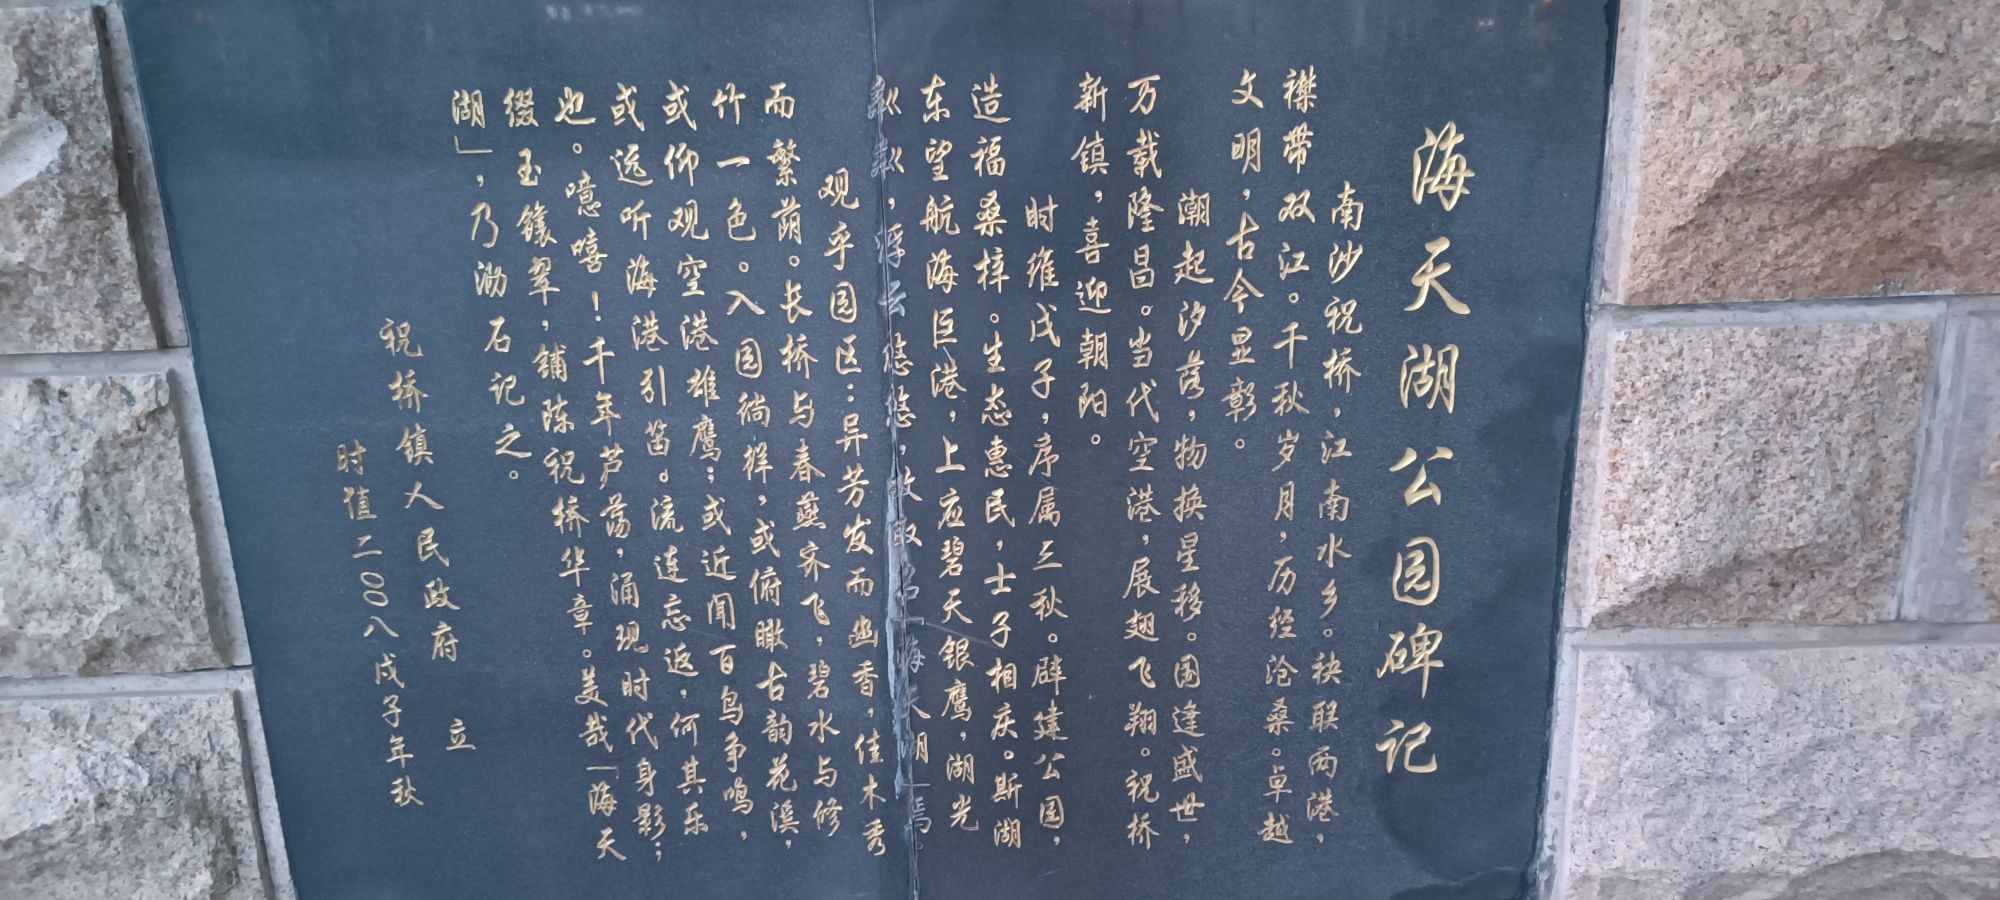 海天湖公园碑记
南沙祝桥，江南水乡。袂联两港，
襟带双江。千秋岁月，历经沧桑。卓越
文明，古今显彰。
潮起汐落，物换星移。国逢盛世，
万载隆昌。当代空港，展翅飞翔。祝桥
新镇，喜迎朝阳。
时维戊子，序属三秋。辟建公园，
造福桑梓。生态惠民，士子相庆。斯湖
东望航海巨港，上应碧天银鹰，湖光
粼粼，浮云悠悠，故取名「海天湖」焉。
观乎园区：异芳发而幽香，佳木秀
而繁荫。长桥与春燕齐飞，碧水与修
竹一色。入园徜徉，或俯瞰古韵花溪，
或仰观空港雄鹰；或近闻百鸟争鸣，
或远听海港引笛。流连忘返，何其乐
也。噫嘻！千年芦荡，涌现时代身影；
缀玉镶翠，铺陈祝桥华章。美哉「海天
湖」，乃泐石记之。
祝桥镇人民政府 立
时值二〇〇八戊子年秋